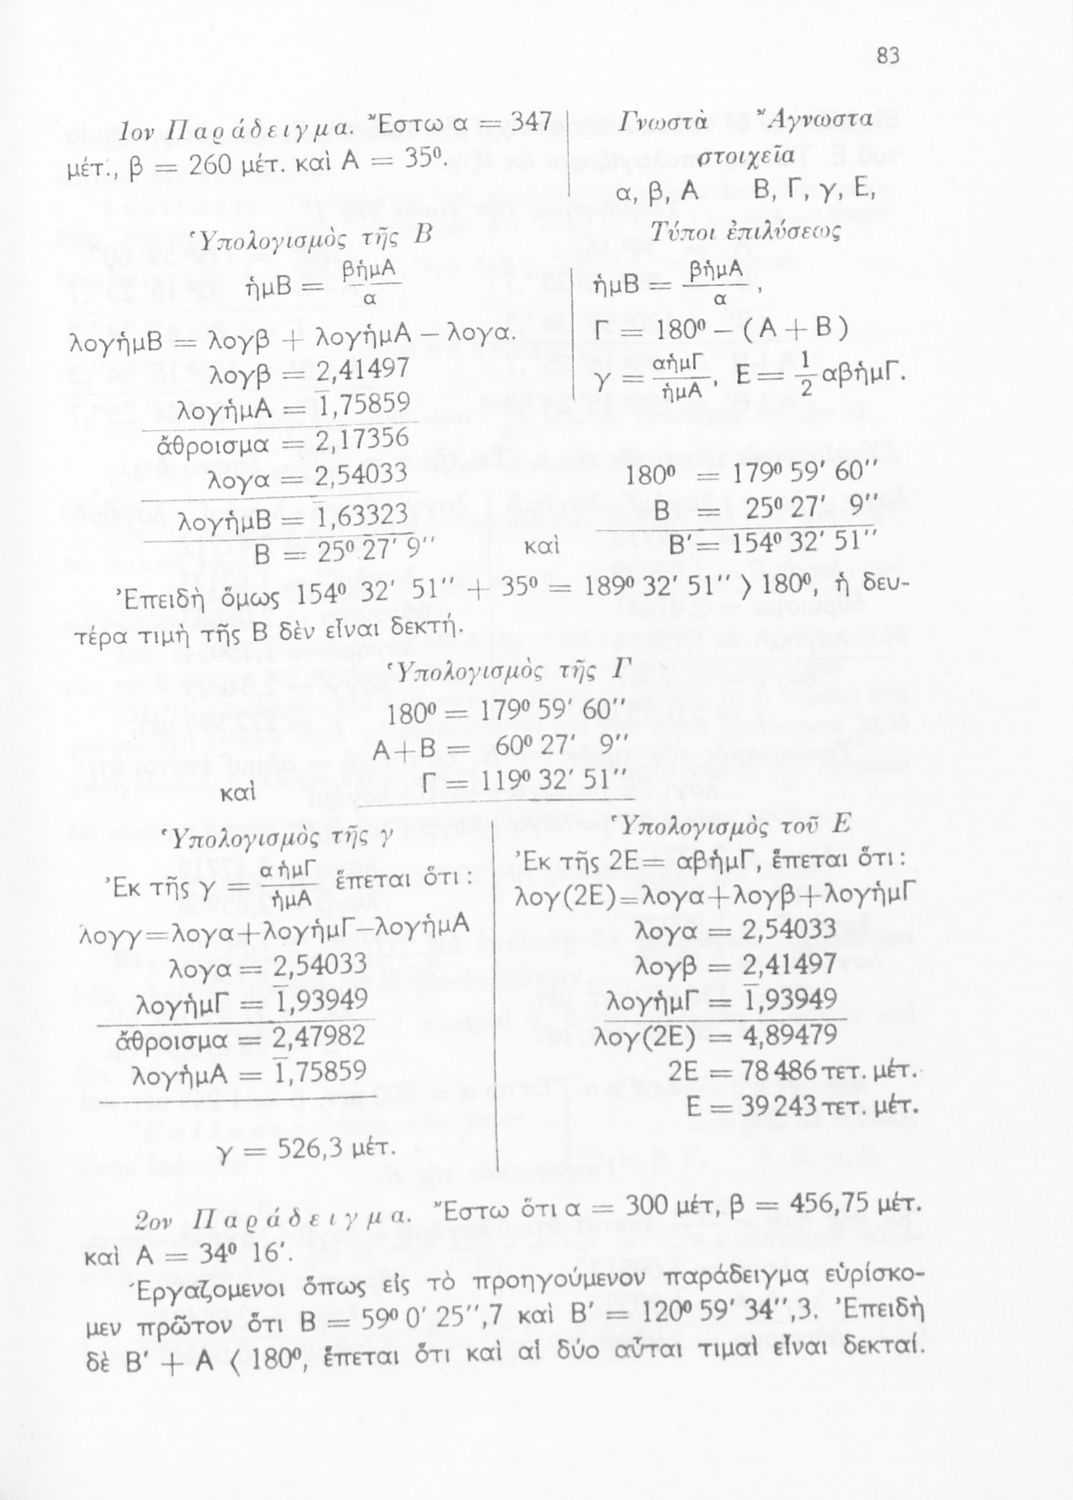 83
1ον Παράδειγμα. Ἔστω α = 347
μέτ., β = 260 μέτ. καὶ Α = 35⁰.
Γνωστὰ Ἄγνωστα
στοιχεῖα
α, β, Α Β, Γ, γ, Ε,
Ὑπολογισμὸς τῆς Β
ἡμΒ = βἡμΑ / α
λογἡμΒ = λογβ + λογἡμΑ – λογα.
λογβ = 2,41497
λογἡμΑ = 1̅,75859
ἄθροισμα = 2,17356
λογα = 2,54033
λογἡμΒ = 1̅,63323
Β = 25⁰ 27′ 9″
Τύποι ἐπιλύσεως
ἡμΒ = βἡμΑ / α ,
Γ = 180⁰ – (Α + Β)
γ = αἡμΓ / ἡμΑ , Ε = 1/2 αβἡμΓ.
180⁰ = 179⁰ 59′ 60″
Β = 25⁰ 27′ 9″
καὶ Β′ = 154⁰ 32′ 51″
Ἐπειδὴ ὅμως 154⁰ 32′ 51″ + 35⁰ = 189⁰ 32′ 51″ > 180⁰, ἡ δευ-
τέρα τιμὴ τῆς Β δὲν εἶναι δεκτή.
Ὑπολογισμὸς τῆς Γ
180⁰ = 179⁰ 59′ 60″
Α+Β = 60⁰ 27′ 9″
καὶ Γ = 119⁰ 32′ 51″
Ὑπολογισμὸς τῆς γ
Ἐκ τῆς γ = α ἡμΓ / ἡμΑ ἕπεται ὅτι :
λογγ=λογα+λογἡμΓ–λογἡμΑ
λογα = 2,54033
λογἡμΓ = 1̅,93949
ἄθροισμα = 2,47982
λογἡμΑ = 1̅,75859
γ = 526,3 μέτ.
Ὑπολογισμὸς τοῦ Ε
Ἐκ τῆς 2Ε= αβἡμΓ, ἕπεται ὅτι :
λογ(2Ε)=λογα+λογβ+λογἡμΓ
λογα = 2,54033
λογβ = 2,41497
λογἡμΓ = 1̅,93949
λογ(2Ε) = 4,89479
2Ε = 78 486 τετ. μέτ.
Ε = 39 243 τετ. μέτ.
2ον Παράδειγμα. Ἔστω ὅτι α = 300 μέτ, β = 456,75 μέτ.
καὶ Α = 34⁰ 16′.
Ἐργαζομενοι ὅπως εἰς τὸ προηγούμενον παράδειγμα εὑρίσκο-
μεν πρῶτον ὅτι Β = 59⁰ 0′ 25″,7 καὶ Β′ = 120⁰ 59′ 34″,3. Ἐπειδὴ
δὲ Β′ + Α < 180⁰, ἕπεται ὅτι καὶ αἱ δύο αὗται τιμαὶ εἶναι δεκταί.